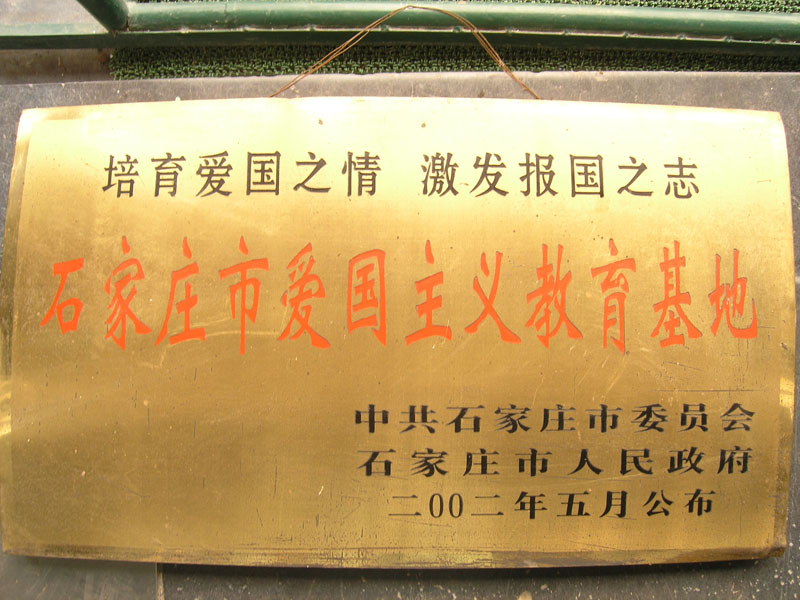 培育爱国之情 激发报国之志
石家庄市爱国主义教育基地
中共石家庄市委员会
石家庄市人民政府
二00二年五月公布